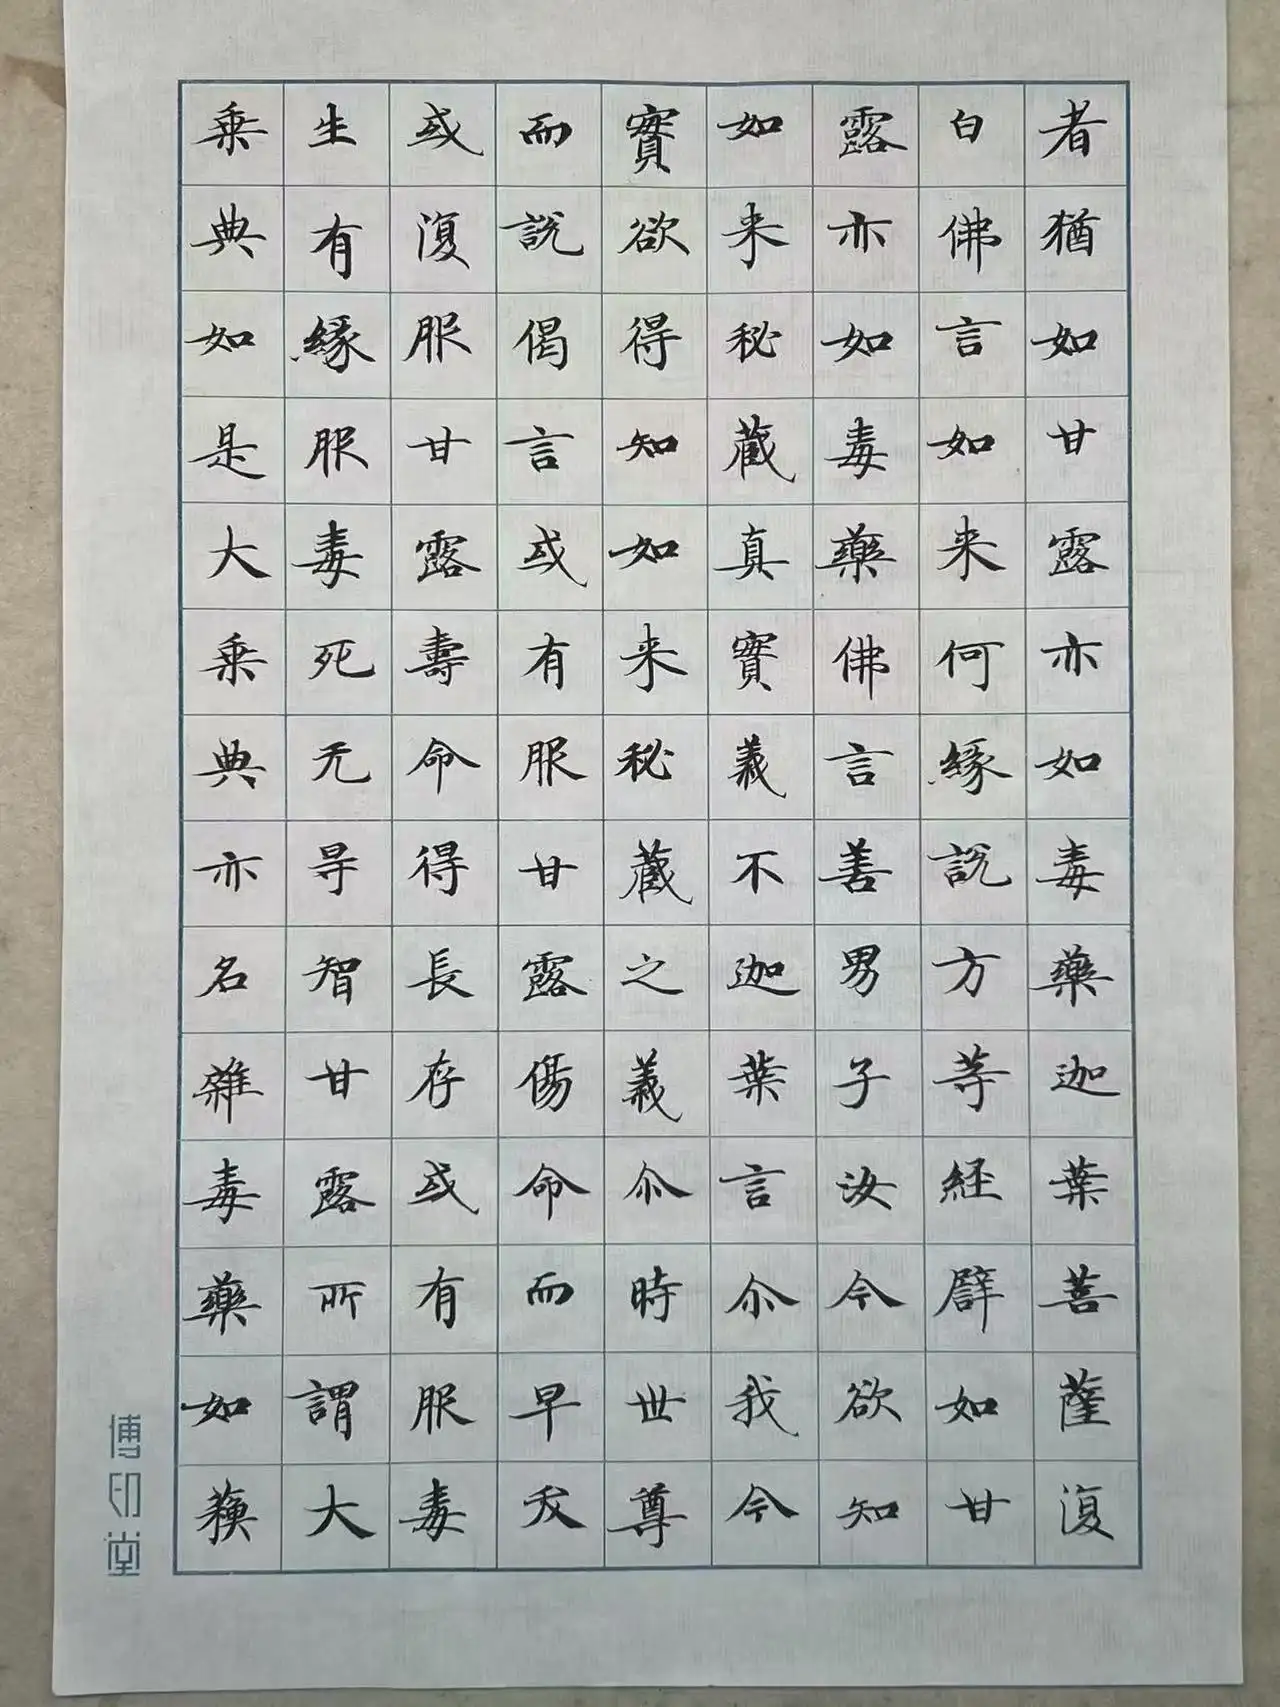 者猶如甘露亦如毒藥迦葉菩薩復
白佛言如来何緣說方等経辟如甘
露亦如毒藥佛言善男子汝今欲知
如来秘蔵真實義不迦葉言尒我今
實欲得知如来秘蔵之義尒時世尊
而說偈言或有服甘露傷命而早夭
或復服甘露壽命得長存或有服毒
生有緣服毒死无㝵智甘露所謂大
乗典如是大乗典亦名雜毒藥如蘓
博印堂